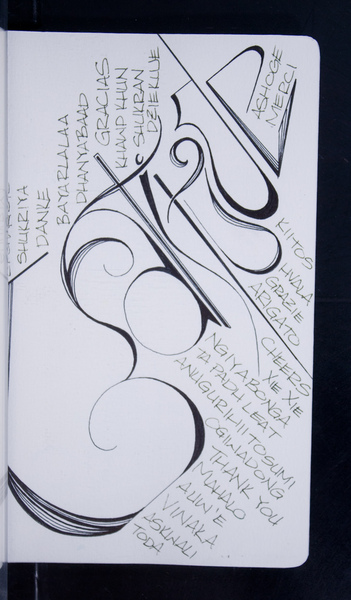 SHUKRIYA
DANKE
BAYARLALAA
DHANYABAAD
GRACIAS
KHAWP KHUN
SHUKRAN
DZIEKUJE
ASHOGE
MERCI
KIITOS
HVALA
GRAZIE
ARIGATO
CHEERS
XIE XIE
NGIYABONGA
TAPADH LEAT
ANUGURIHIITOSUMI
OGIWADONG
THANK YOU
MAHALO
ALIW'E
VINAKA
ASKWALI
TODA